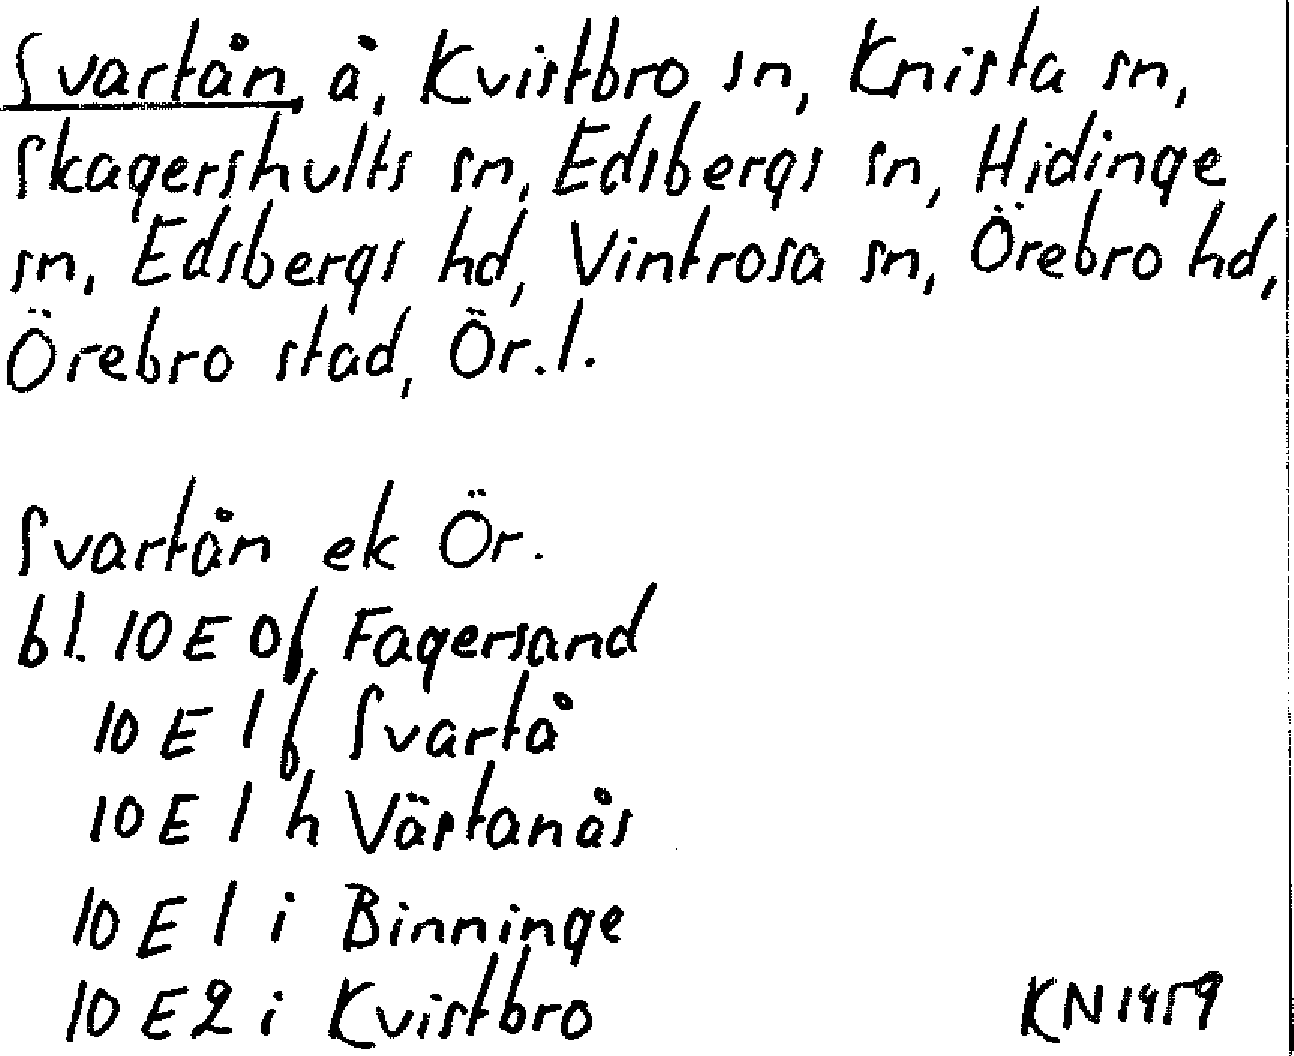 Svartån, å, Kvistbro sn, Knista sn,
Skagershults sn, Edsbergs sn, Hidinge
sn, Edsbergs hd, Vintrosa sn, Örebro hd,
Örebro stad, Ör.l.
Svartån ek Ör.
bl. 10 E 0f Fagersand
10 E 1f Svartå
10 E 1 h Västanås
10 E 1 i Binninge
10 E 2 i Kvistbro
KN 1959